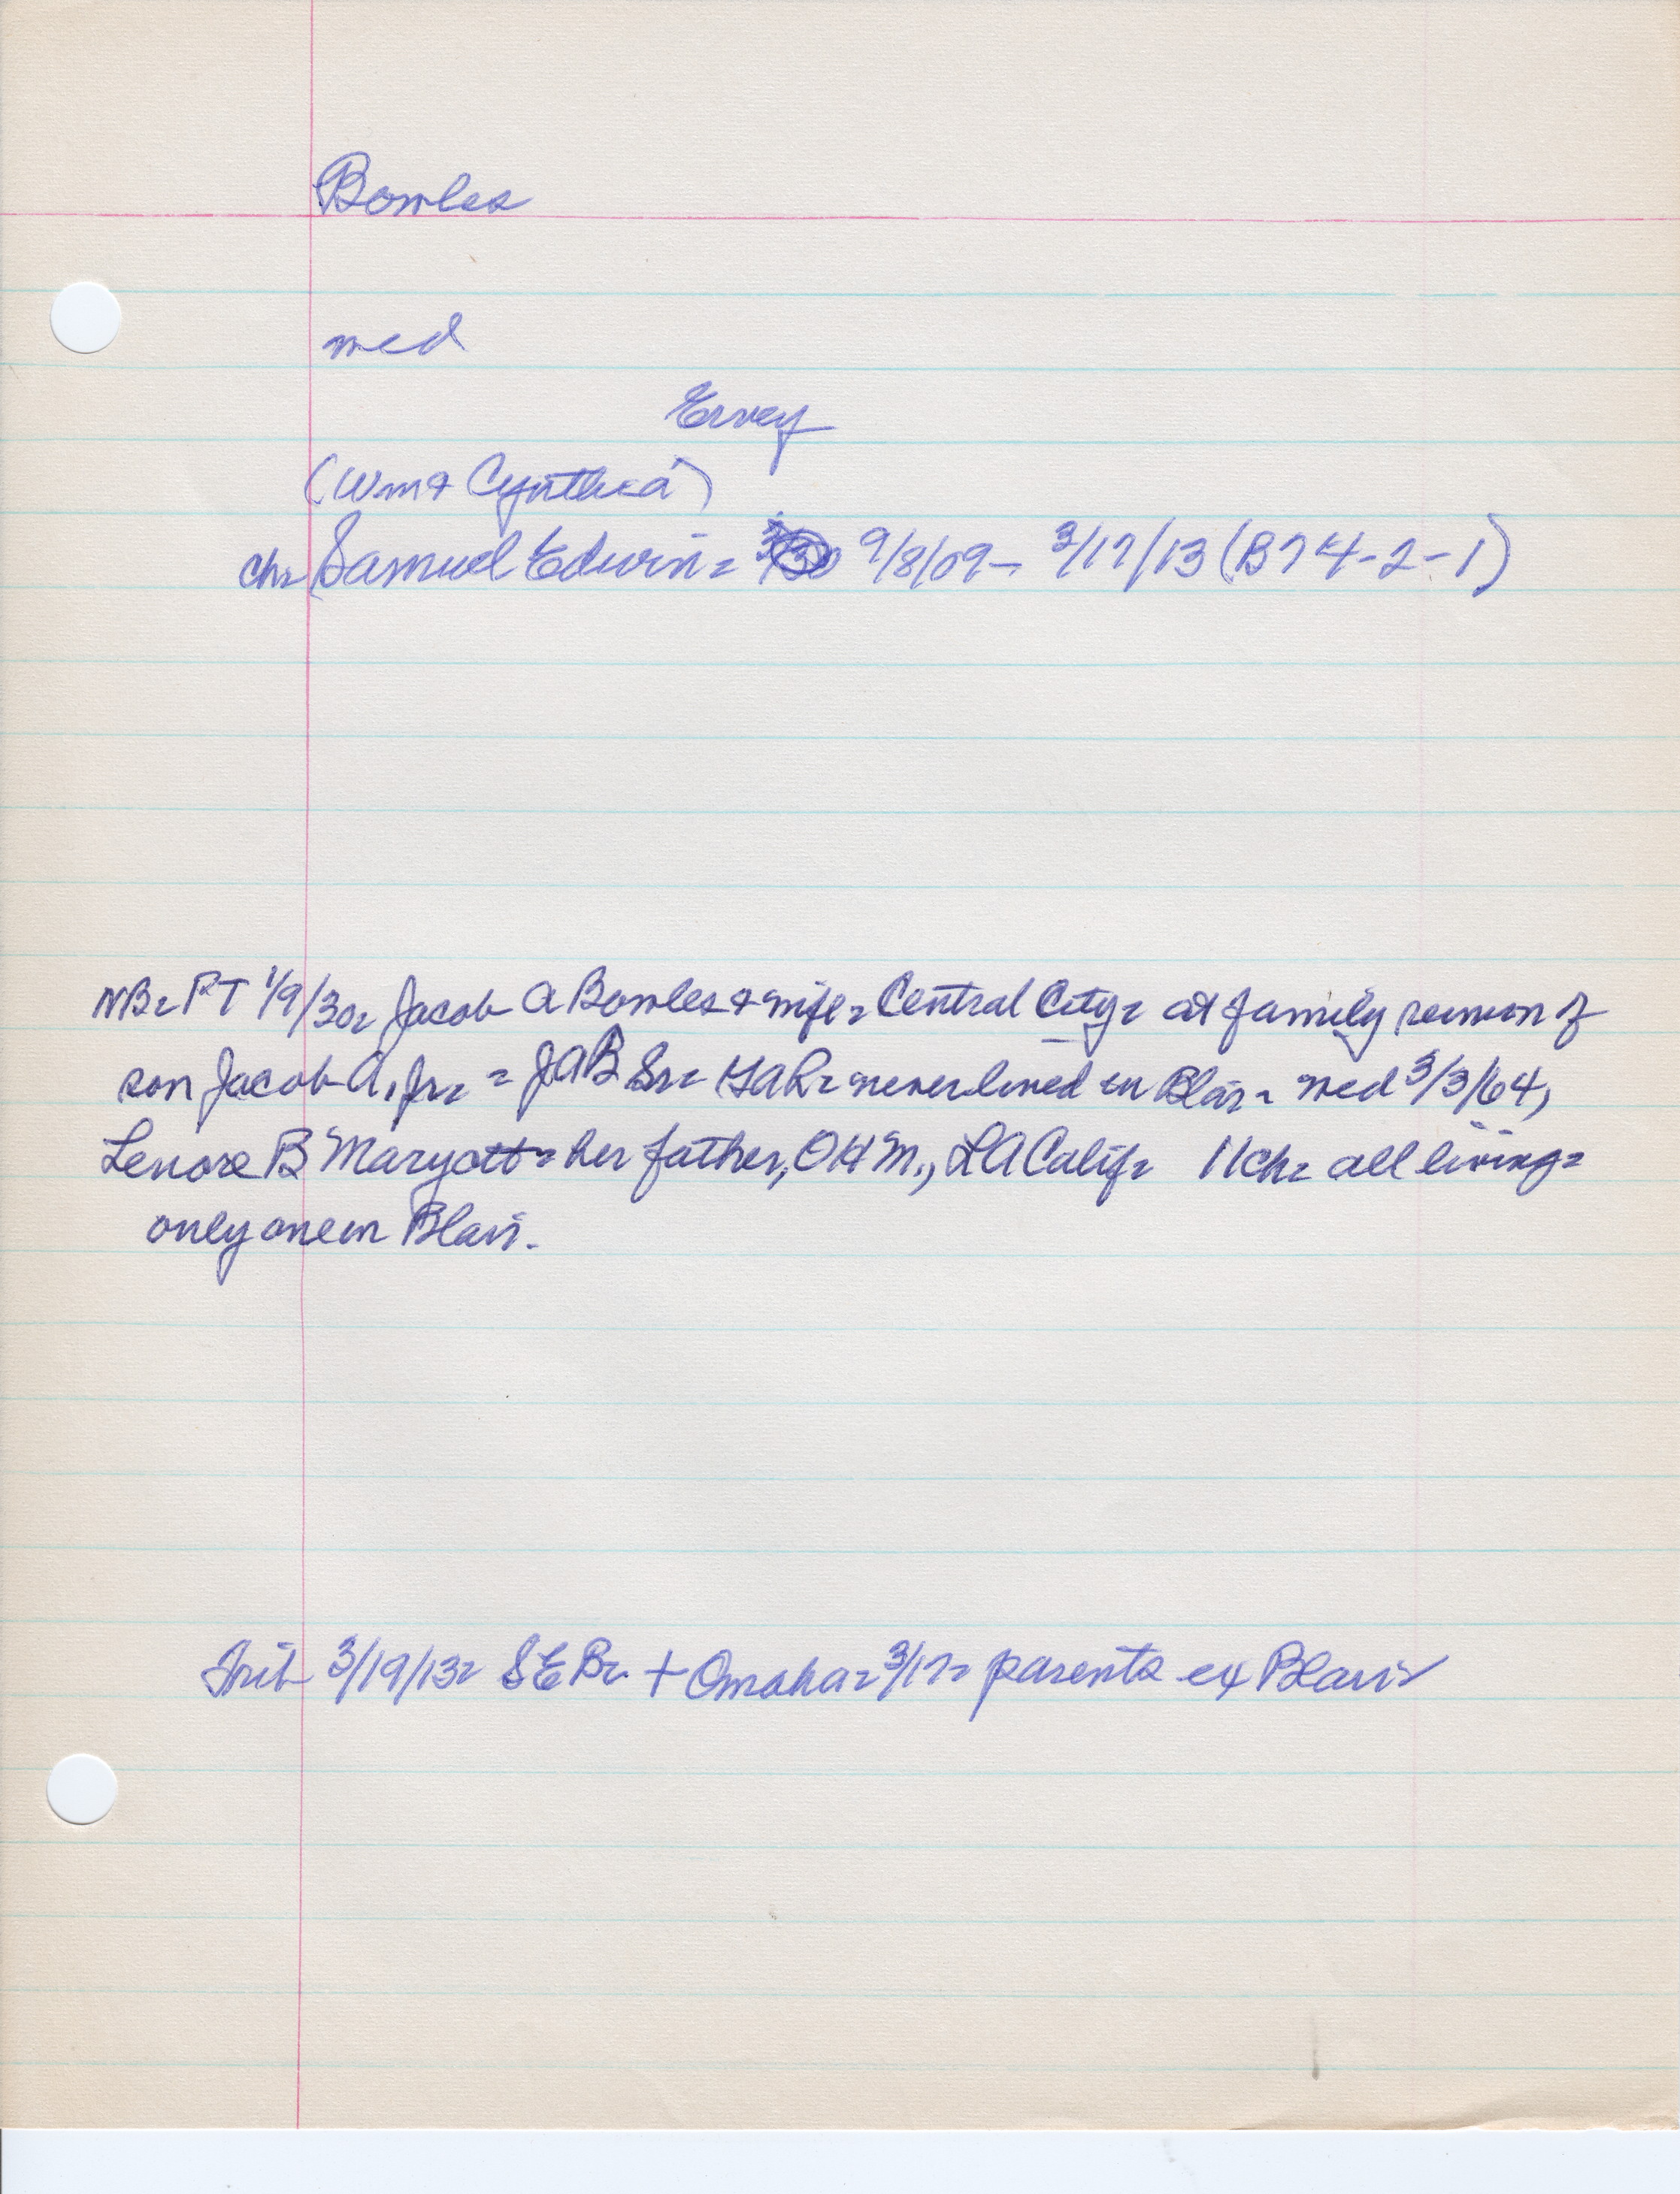 Bowles
med
Ervey
(Wm & Cynthia)
ch= Samuel Edwin= 9/8/09- 3/17/13 (B74-2-1)
NB= PT 1/9/30= Jacob A Bowles & wife= Central City= at family reunion of
son Jacob A, Jr= = JAB Sr= GAR= never lived in Blair= med 3/3/64,
Lenore B Maryott= her father, OHM., LA Calif= 11 ch= all living=
only one in Blair.
Trib 3/19/13= SEB= + Omaha= 3/17= parents ex Blair